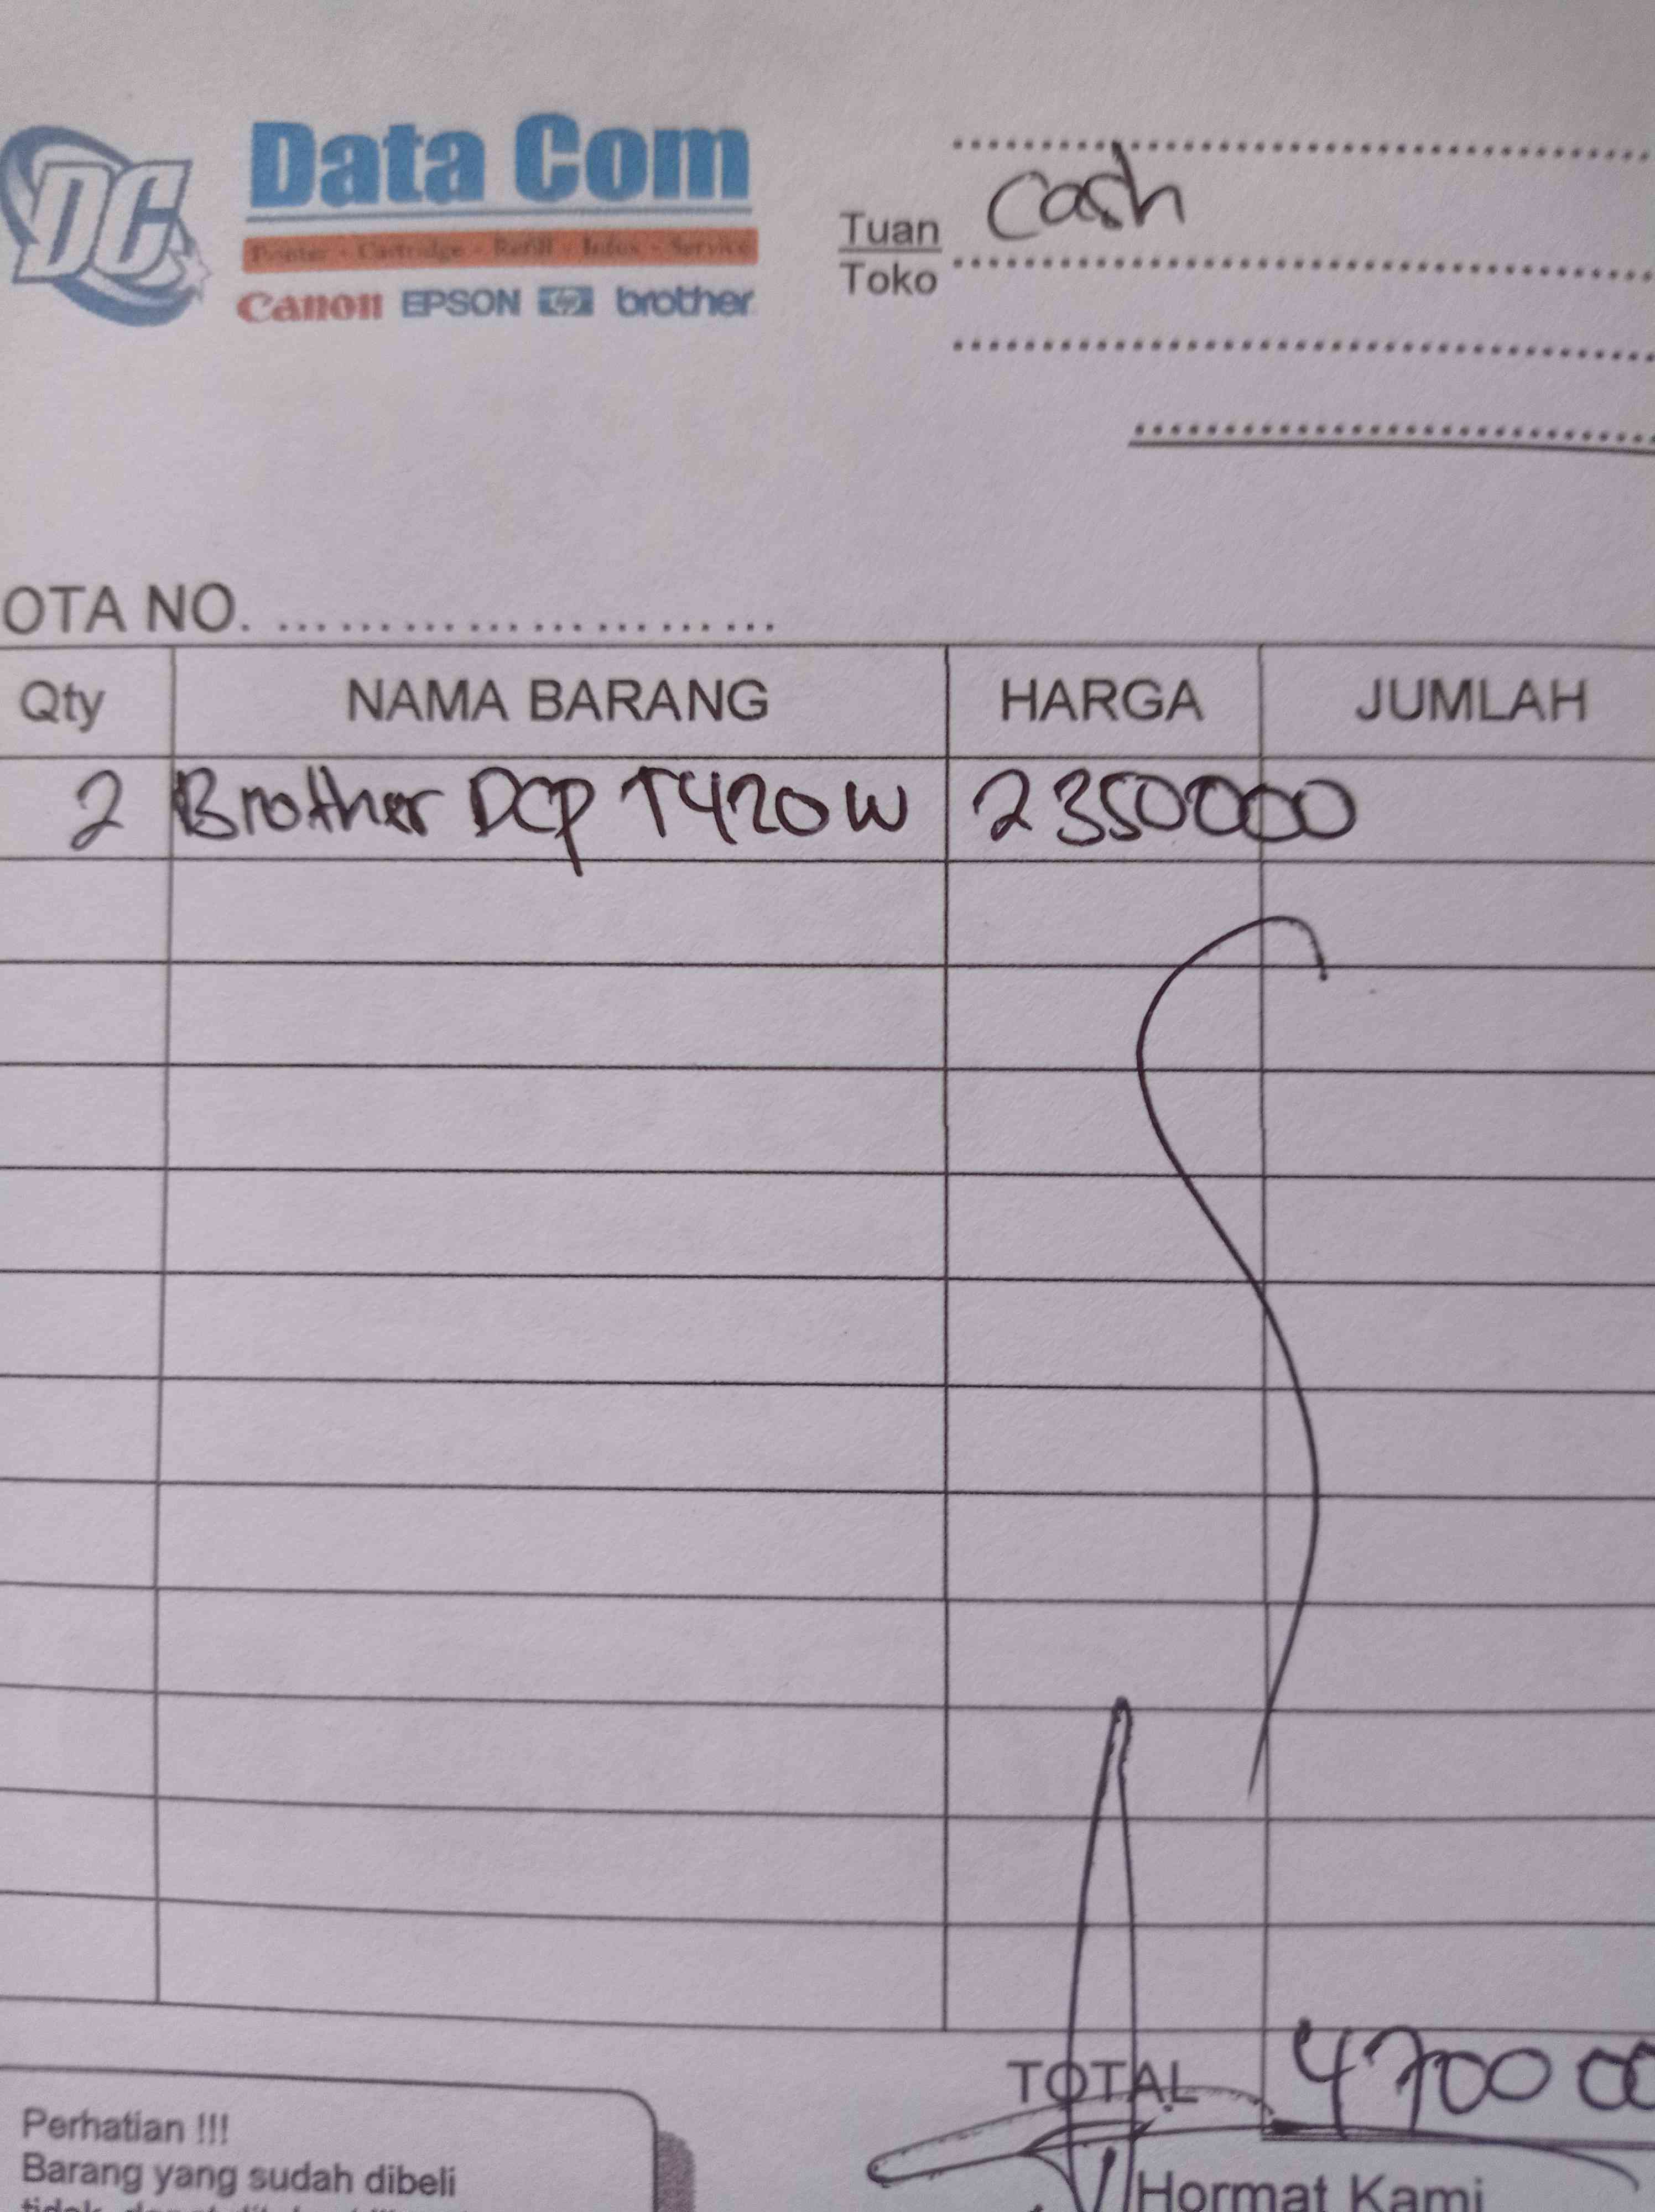 DC
Data Com
Printer - Cartridge - Refill - Infus - Service
Canon EPSON hp brother
Tuan
Toko
Cash
OTA NO. ........................
Qty NAMA BARANG HARGA JUMLAH
2 Brother DCP T420W 2350000
TOTAL 4700 00
Perhatian !!!
Barang yang sudah dibeli
Hormat Kami